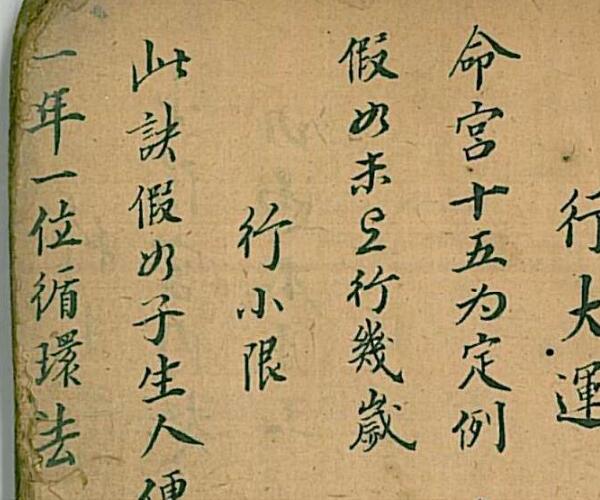 行大運
命宮十五为定例
假如未宫行幾歲
行小限
此訣假如子生人便
一年一位循環法